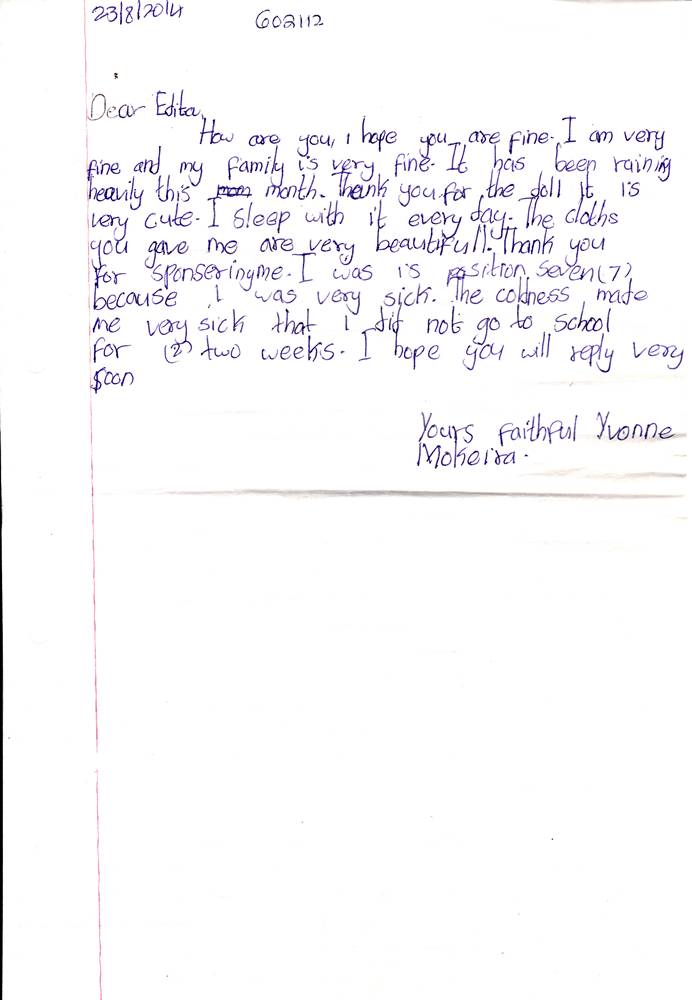 23/8/2014
602112
Dear Edita,
How are you, i hope you are fine. I am very
fine and my family is very fine. It has been raining
heavily this month. Thank you for the doll It is
very cute. I sleep with it every day. The cloths
you gave me are very beautifull. Thank you
for sponsering me. I was is position seven (7)
because i was very sick. The coldness made
me very sick that i did not go to school
for (2) two weeks. I hope you will reply very
soon
Yours faithful Yvonne
Mokeira.